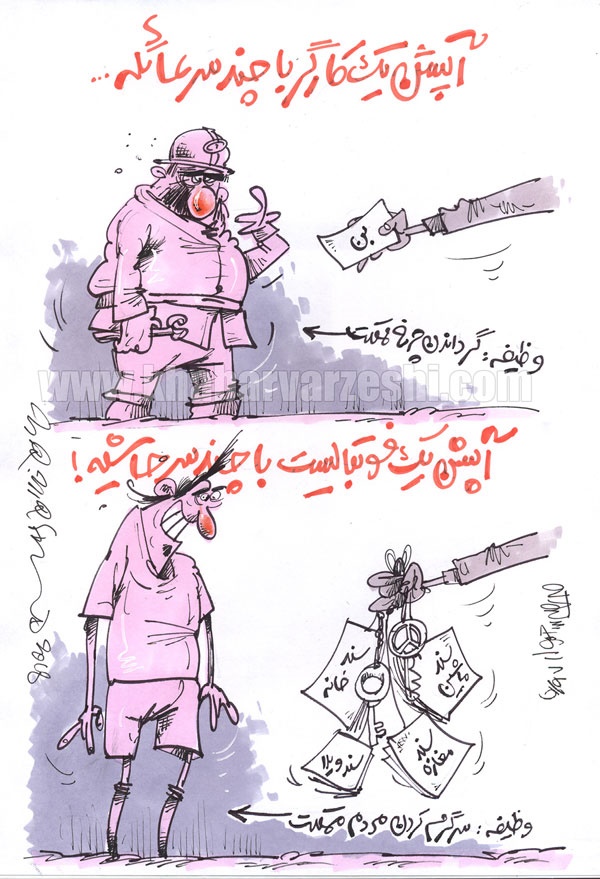 آپشن یک کارگر با چند سر عائله...
بن
وظیفه: گرداندن چرخه مملکت
www.khabarvarzeshi.com
آپشن یک فوتبالیست با چند سر حاشیه!
سند خانه
سند ماشین
سند ویلا
سند مغازه
وظیفه: سرگرم کردن مردم مملکت